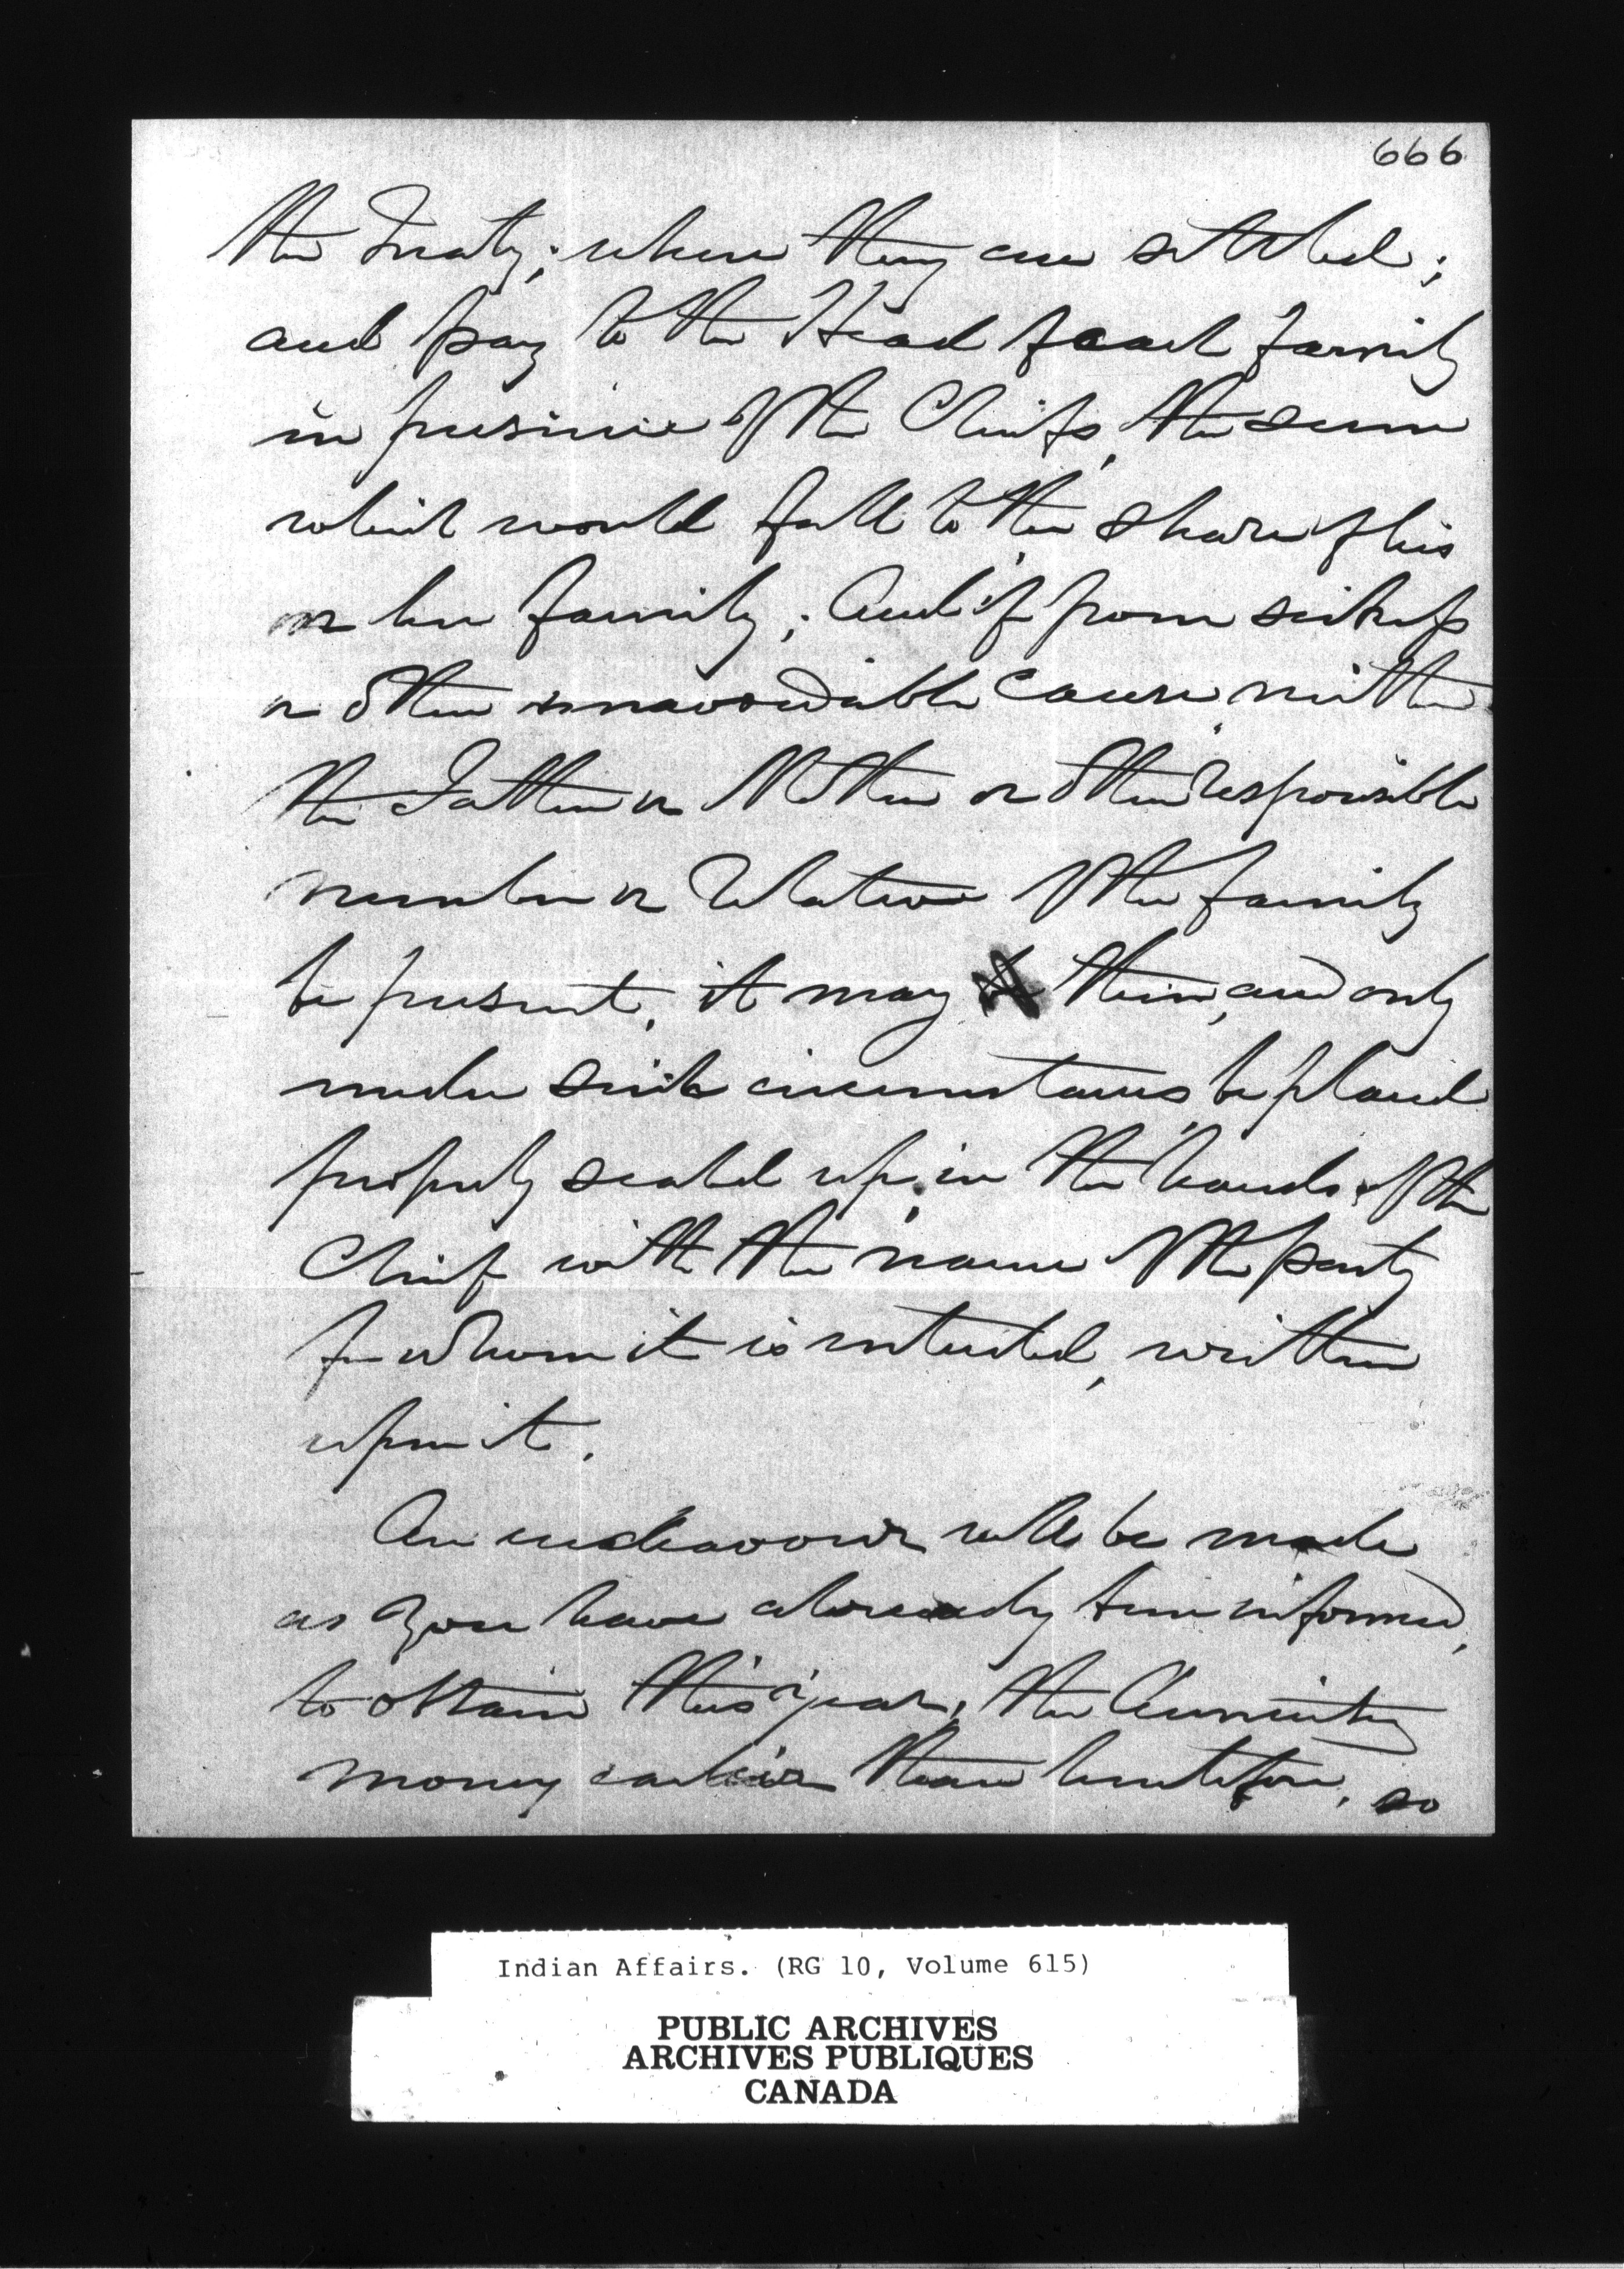 666
the Treaty; where they are settled;
and pay to the Head of each family
in presence of the Chiefs, the sum
which would fall to the share of his
or her family; And if from sickness
or other unavoidable cause neither
the Father or Mother or other responsible
member or relative of the family
be present, it may then, and only
under such circumstances, be placed
properly sealed up, in the hands of the
Chief with the name of the party
for whom it is intended, written
upon it.
An endeavour will be made
as you have already been informed,
to obtain this year, the Annuity
money earlier than heretofore, so
Indian Affairs. (RG 10, Volume 615)
PUBLIC ARCHIVES
ARCHIVES PUBLIQUES
CANADA